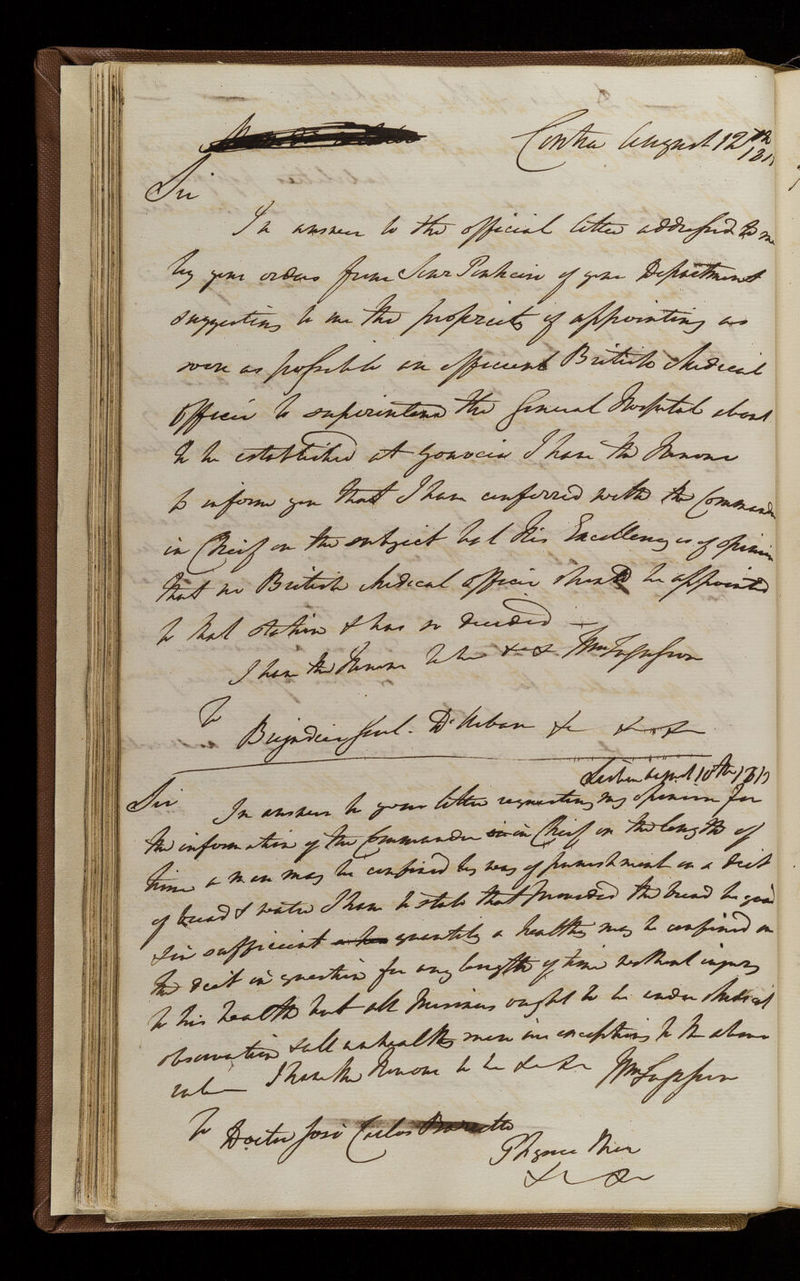 Cintra August 12th 181
Sir
In answer to the official letter addressed to me
by your orders from Senr Pinheiro of your Department
suggesting to me the propriety of appointing as
soon as possible an efficient British Medical
Officer to superintend the General Hospital about
to be established at Gouvcia I have the Honour
to inform you that I have conferred with the Commander
in Cheif on the subject but His Excellency is of opinion
that no British Medical officer should be appointed
to that station & has so decided —
I have the Honour to be &c &c Wm Fergusson
To
Brigadier Genl. D'Urban &c &c &c
Lisbon Augst 18th 181
Sir In answer to your letter requesting my opinion for
the information of the Commander in Cheif on the length of
time a man may be confined by way of punishment on a diet
of bread & water I have to state that provided the bread be good
& in sufficient quantity a healthy may be confined on
the diet in question for any length of time without injury
to his health but all Prisoners ought to be under Medical
observation & all unhealthy men are exceptions to the above
rule — I have the Honour to be &c &c Wm Fergusson
To Doctor José Carlos Barretto
Physn Mor
&c &c